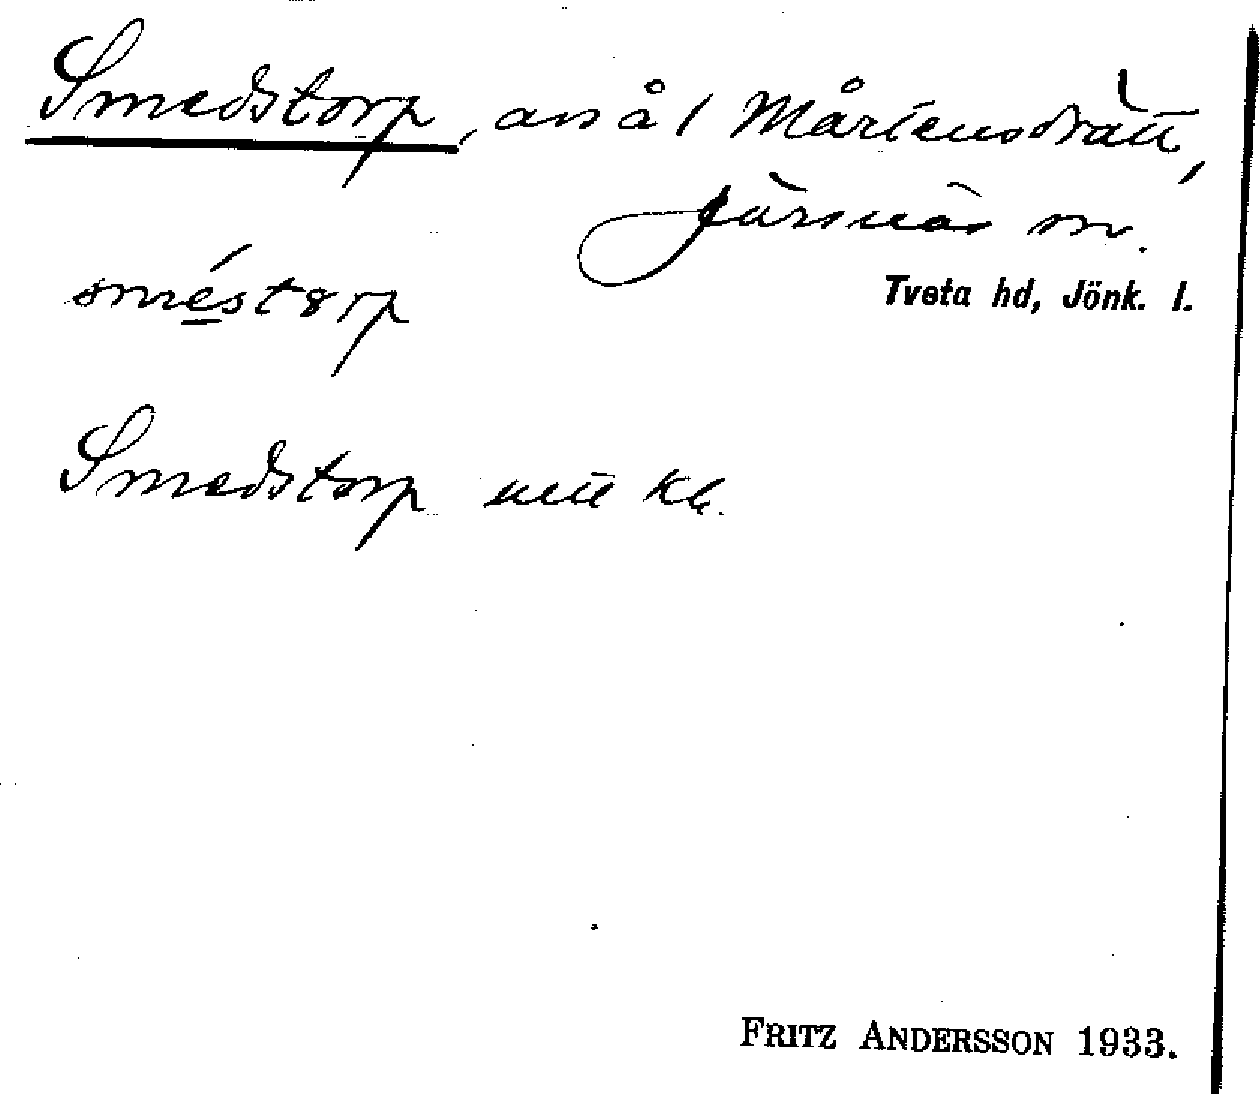 Smedstorp, avs å 1 Mårtensdrätt,
Järsnäs sn.
Tveta hd, Jönk. l.
sméstorp
Smedstorp
FRITZ ANDERSSON 1933.